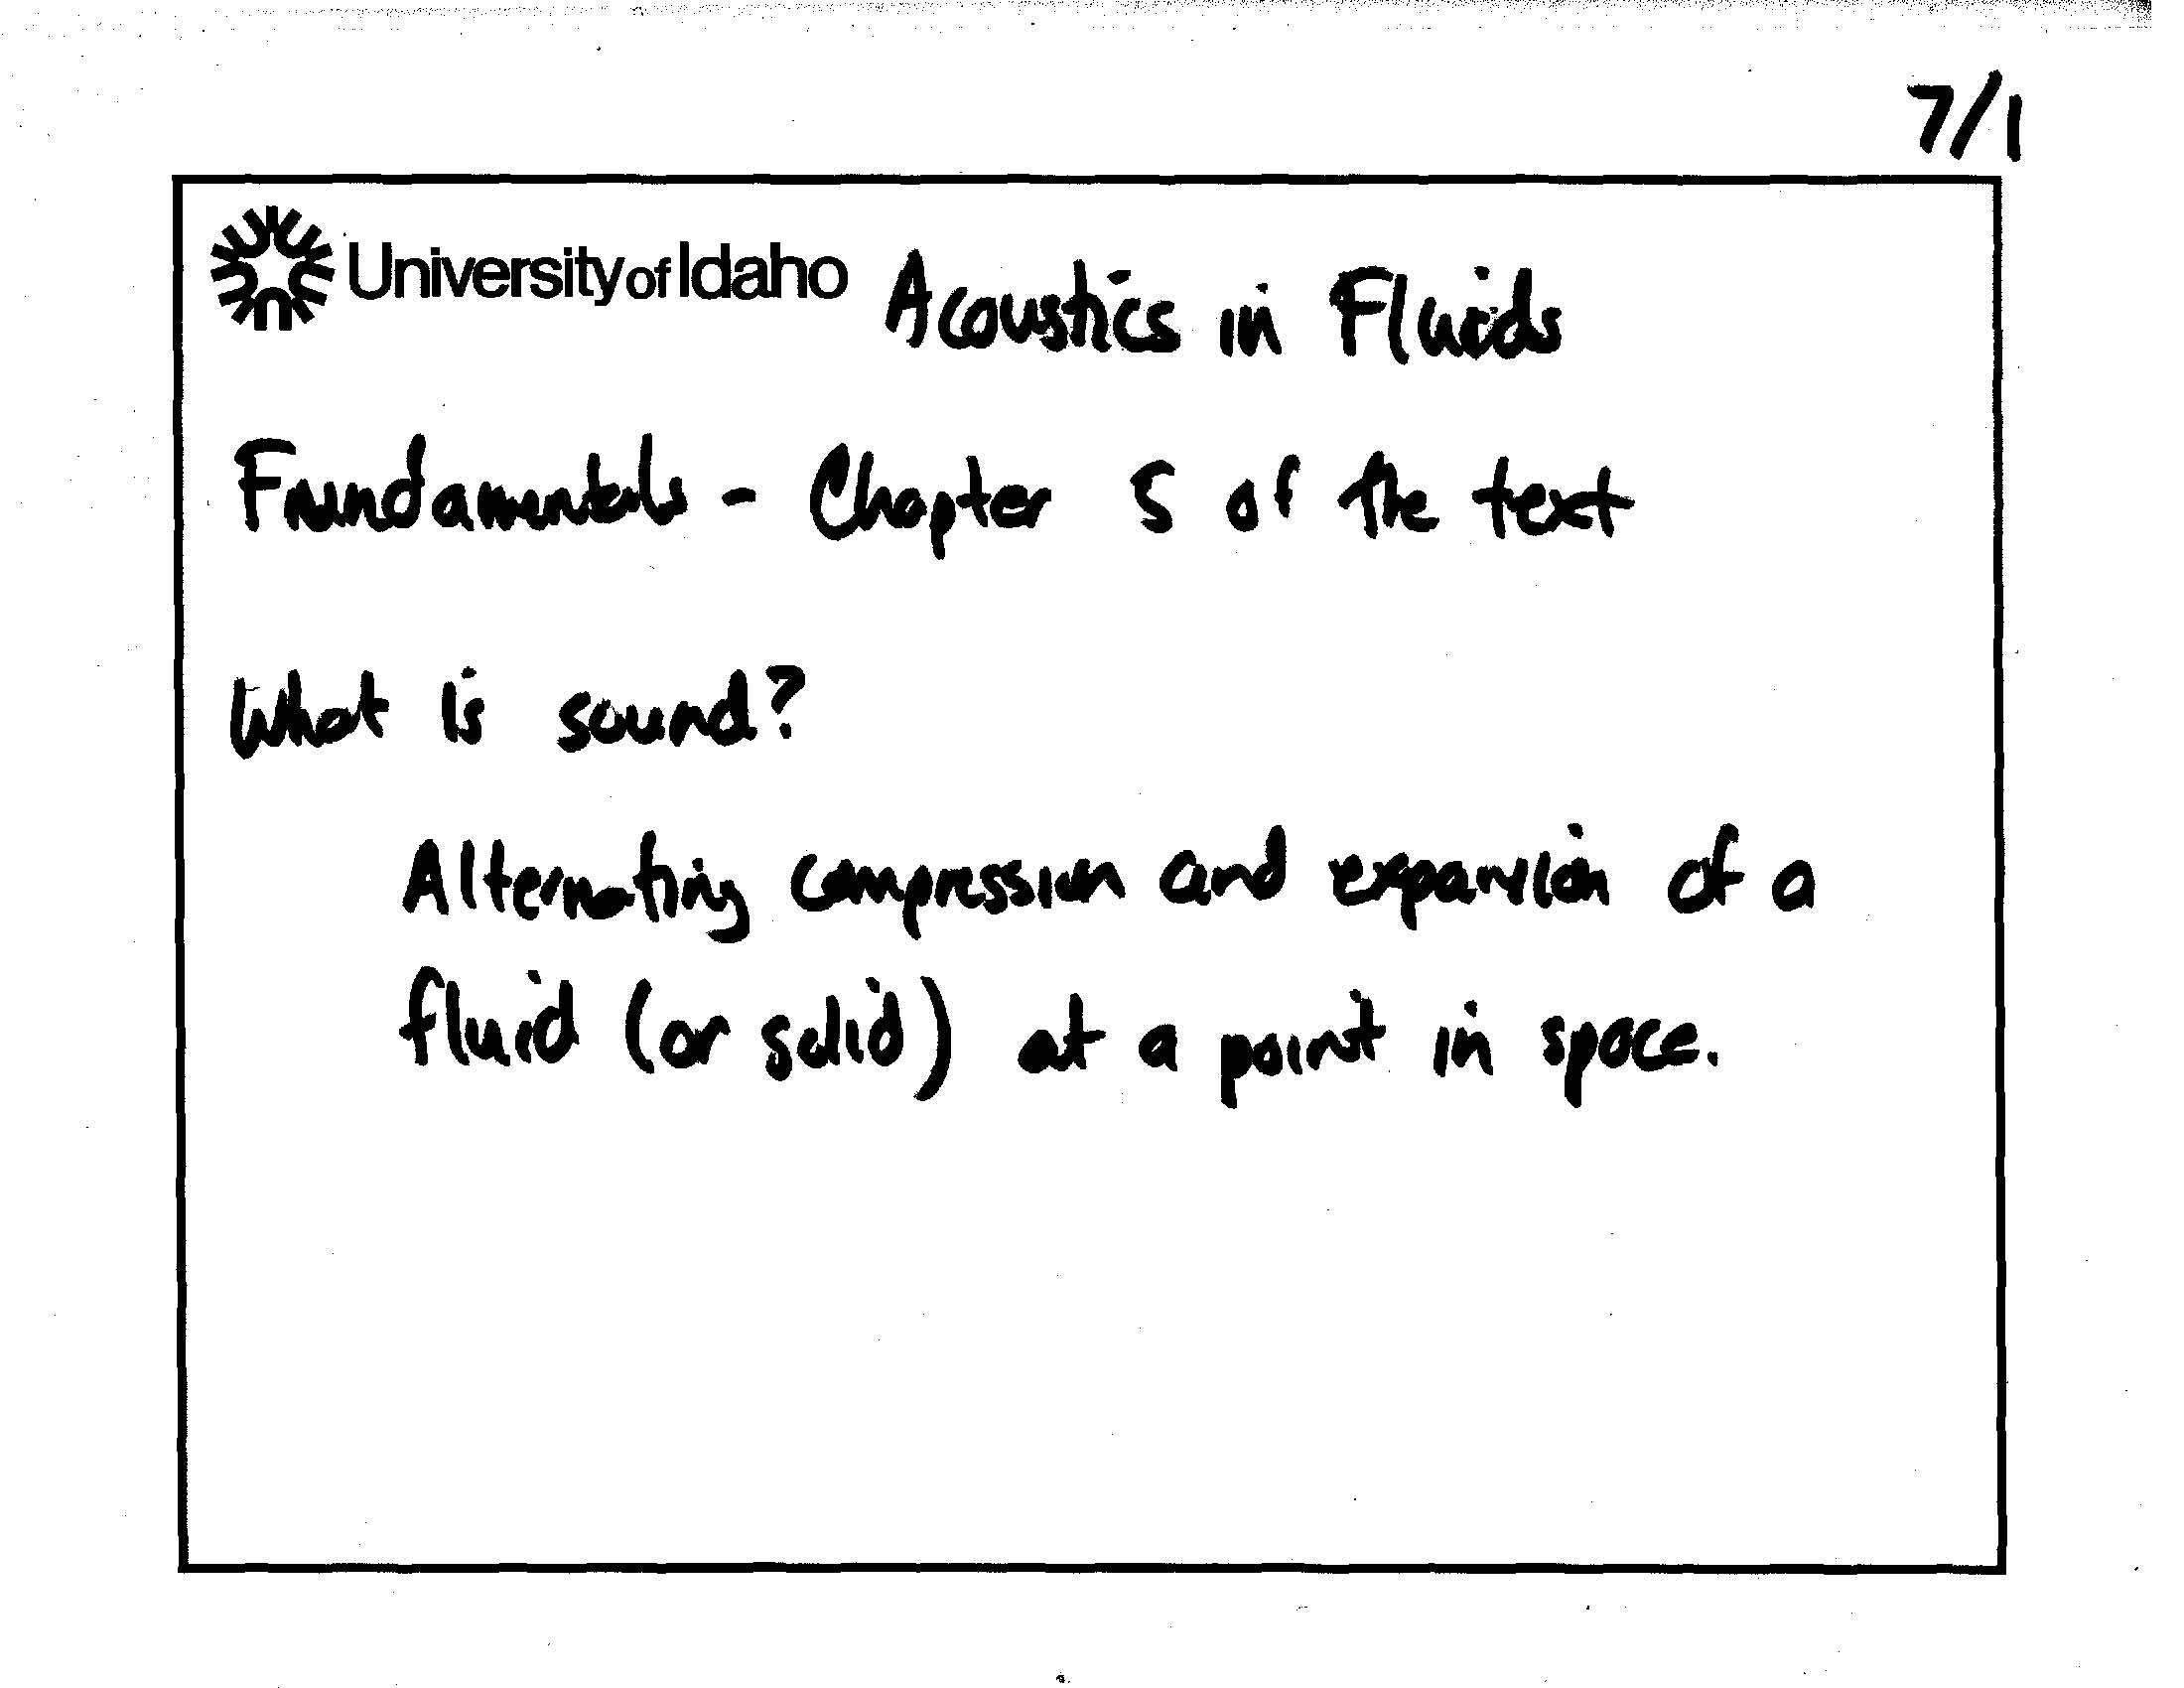 7/1
University of Idaho Acoustics in Fluids
Fundamentals - Chapter 5 of the text
What is sound?
Alternating compression and expansion of a
fluid (or solid) at a point in space.